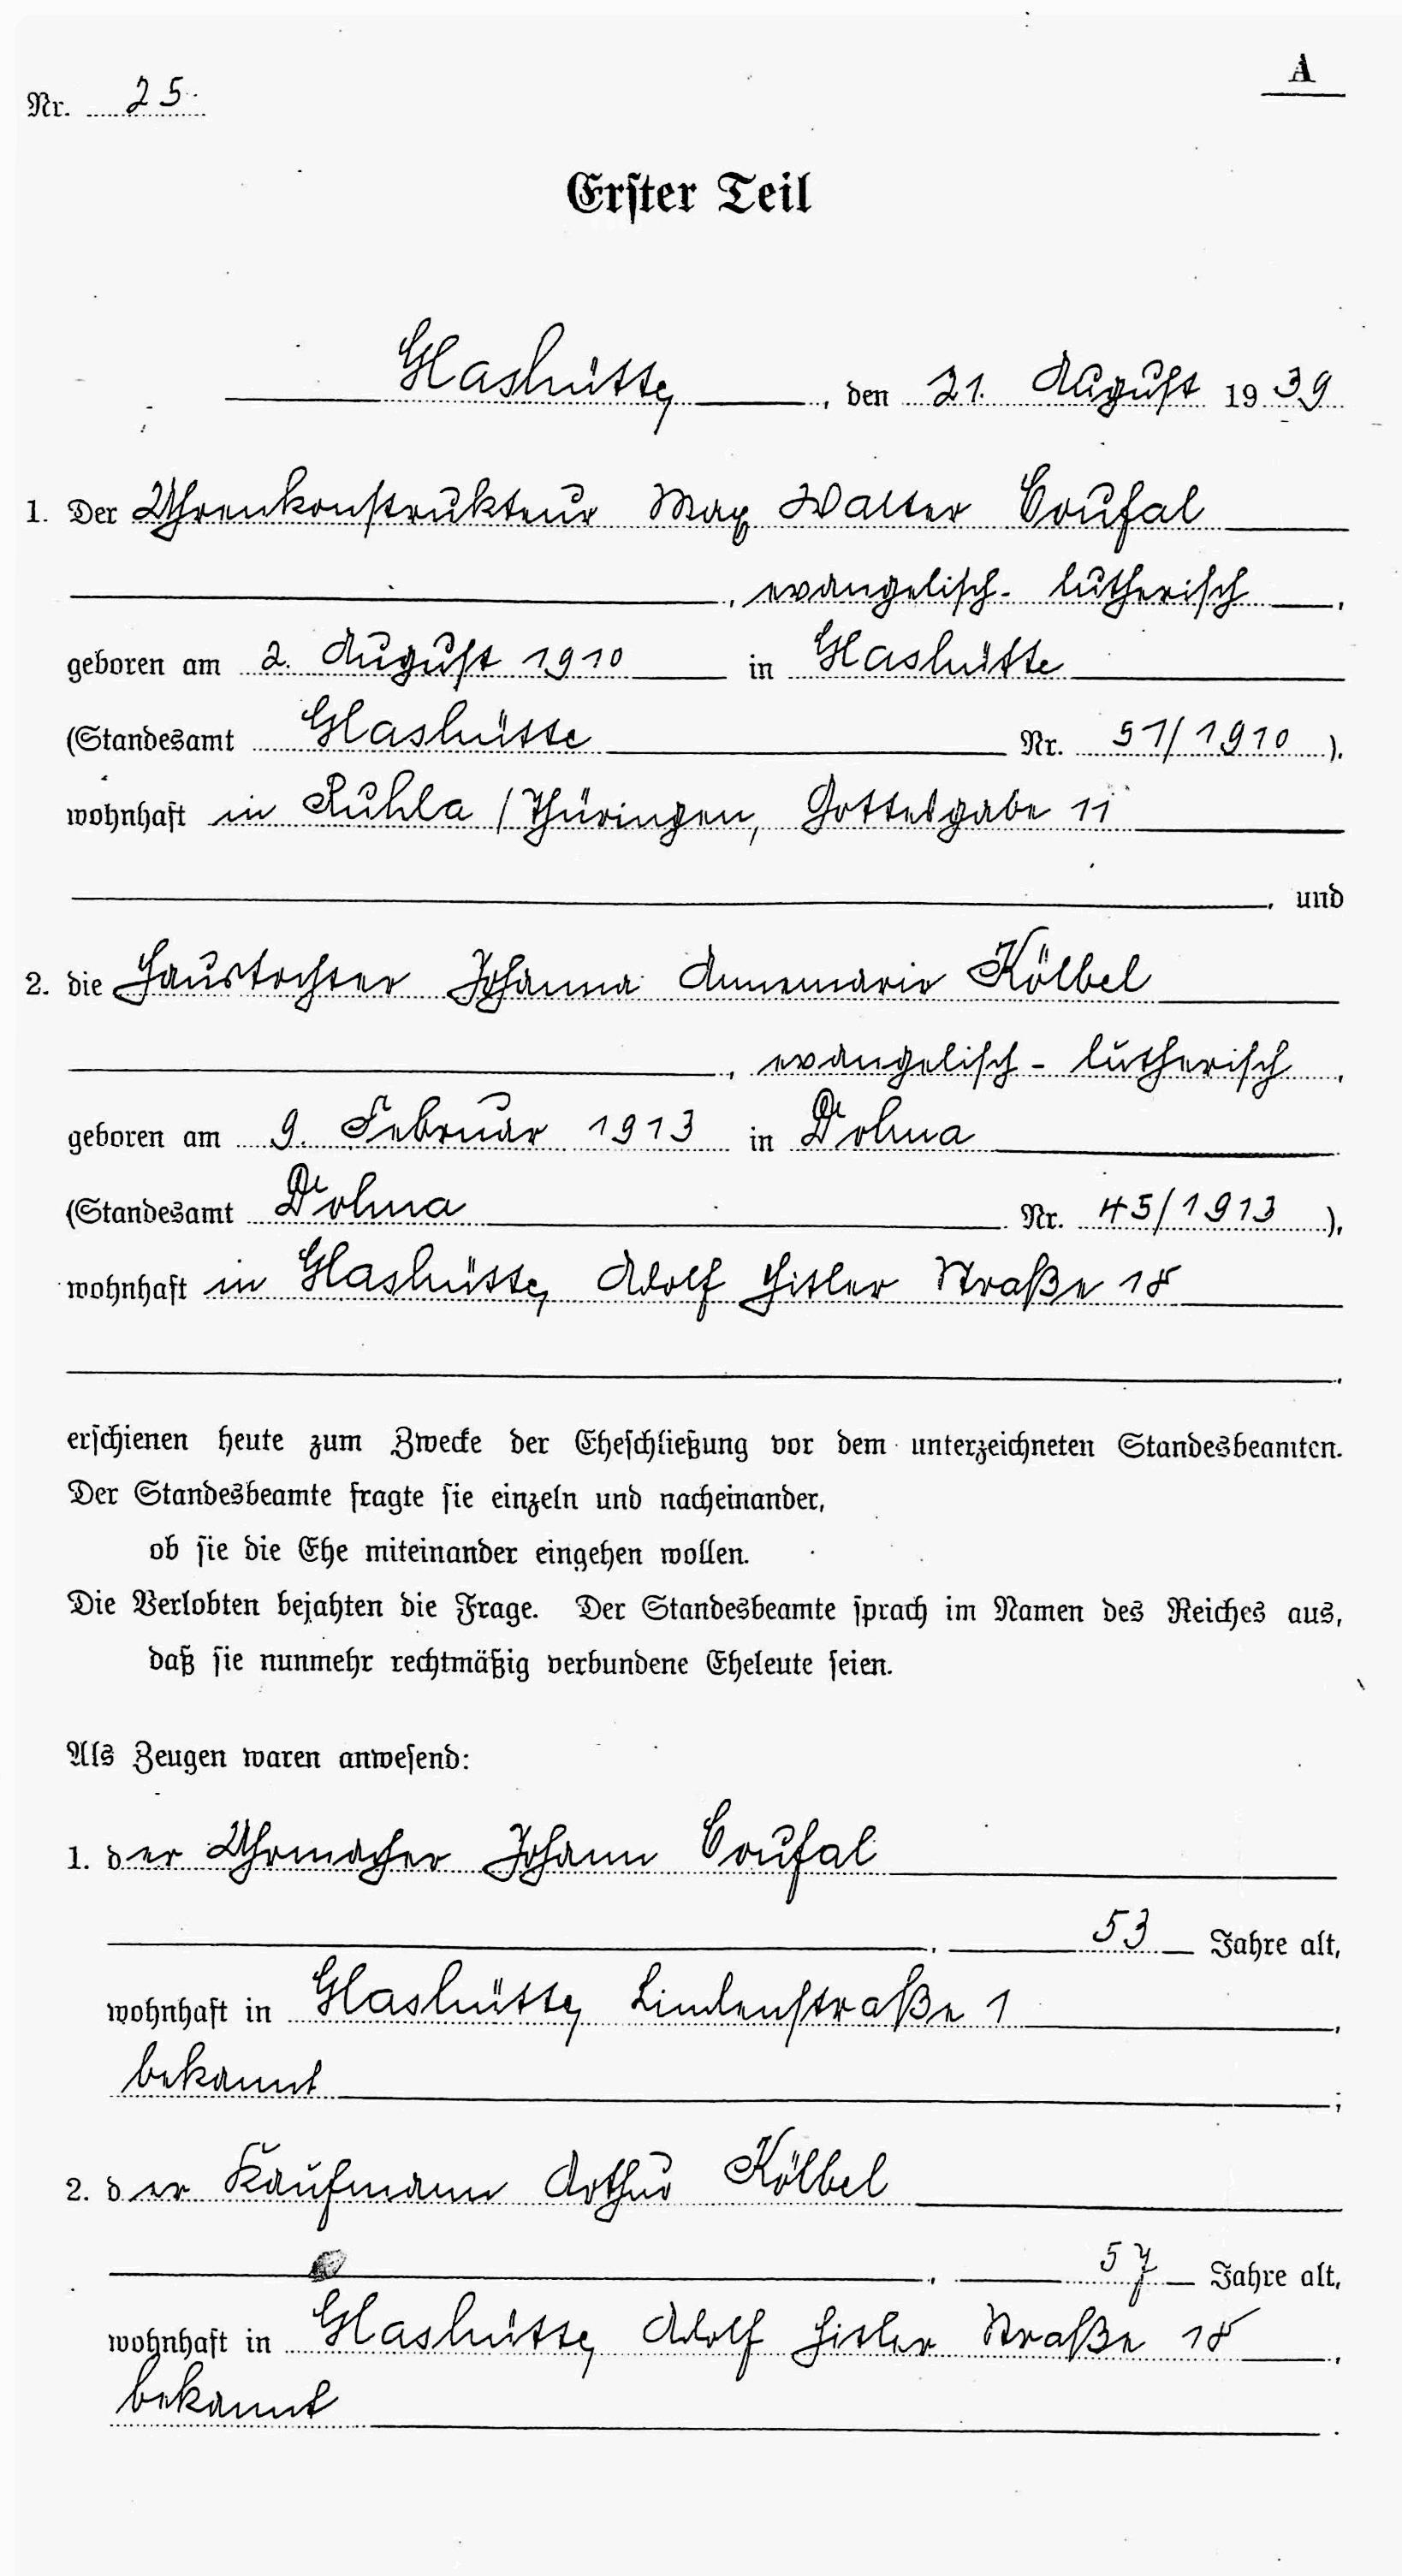 A
Nr. 25.
Erster Teil
Glashütte, den 21. August 1939
1. Der Uhrenkonstrukteur Max Walter Coufal
, evangelisch-lutherisch,
geboren am 2. August 1910 in Glashütte
(Standesamt Glashütte Nr. 51/1910).
wohnhaft in Ruhla/Thüringen, Gottesgabe 11
, und
2. die Haustochter Johanna Annemarie Kölbel
, evangelisch-lutherisch,
geboren am 9. Februar 1913 in Dohna
(Standesamt Dohna Nr. 45/1913),
wohnhaft in Glashütte, Adolf Hitler Straße 18
.
erschienen heute zum Zwecke der Eheschließung vor dem unterzeichneten Standesbeamten.
Der Standesbeamte fragte sie einzeln und nacheinander,
ob sie die Ehe miteinander eingehen wollen.
Die Verlobten bejahten die Frage. Der Standesbeamte sprach im Namen des Reiches aus,
daß sie nunmehr rechtmäßig verbundene Eheleute seien.
Als Zeugen waren anwesend:
1. der Uhrmacher Johann Coufal
, 53 Jahre alt,
wohnhaft in Glashütte, Lindenstraße 1,
bekannt;
2. der Kaufmann Arthur Kölbel
, 57 Jahre alt,
wohnhaft in Glashütte, Adolf Hitler Straße 18,
bekannt.